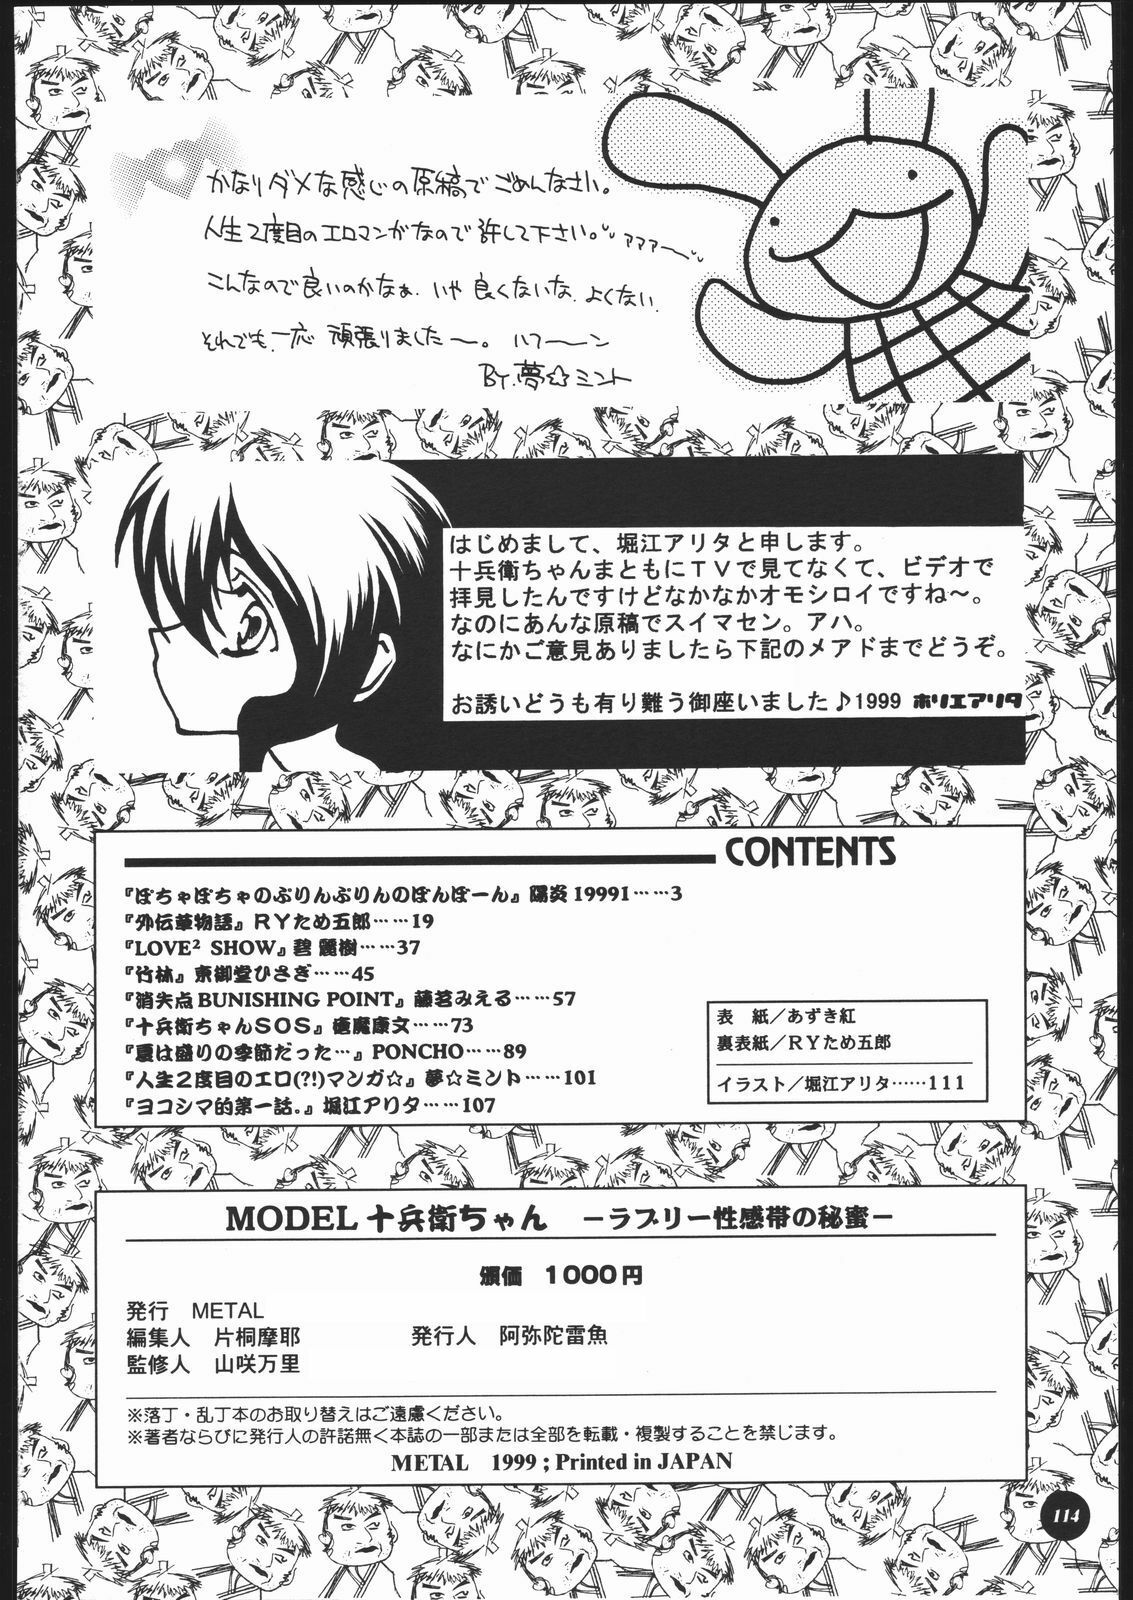 かなりダメな感じの原稿でごめんなさい。
人生2度目のエロマンガなので許して下さい。 アアアー
こんなので良いのかなぁ、いや良くないな、よくない
それでも、一応 頑張りました〜。 ハフーン
By.夢☆ミント
はじめまして、堀江アリタと申します。
十兵衛ちゃんまともにTVで見てなくて、ビデオで
拝見したんですけどなかなかオモシロイですね〜。
なのにあんな原稿でスイマセン。アハ。
なにかご意見ありましたら下記のメアドまでどうぞ。
お誘いどうも有り難う御座いました♪1999 ホリエアリタ
CONTENTS
『ぽちゃぽちゃのぷりんぷりんのぼんぼーん』陽炎19991……3
『外伝草物語』RYため五郎……19
『LOVE² SHOW』碧 麗樹……37
『竹林』東御堂ひさぎ……45
『消失点 BUNISHING POINT』藤茗みえる……57
『十兵衛ちゃんSOS』魔康文……73
『夏は盛りの季節だった…』PONCHO……89
『人生2度目のエロ(?!)マンガ☆』夢☆ミント……101
『ヨコシマ的第一話。』堀江アリタ……107
表 紙／あずき紅
裏表紙／RYため五郎
イラスト／堀江アリタ……111
MODEL 十兵衛ちゃん −ラブリー性感帯の秘蜜−
頒価 1000円
発行 METAL
編集人 片桐摩耶 発行人 阿弥陀雷魚
監修人 山咲万里
※落丁・乱丁本のお取り替えはご遠慮ください。
※著者ならびに発行人の許諾無く本誌の一部または全部を転載・複製することを禁じます。
METAL 1999 ; Printed in JAPAN
114